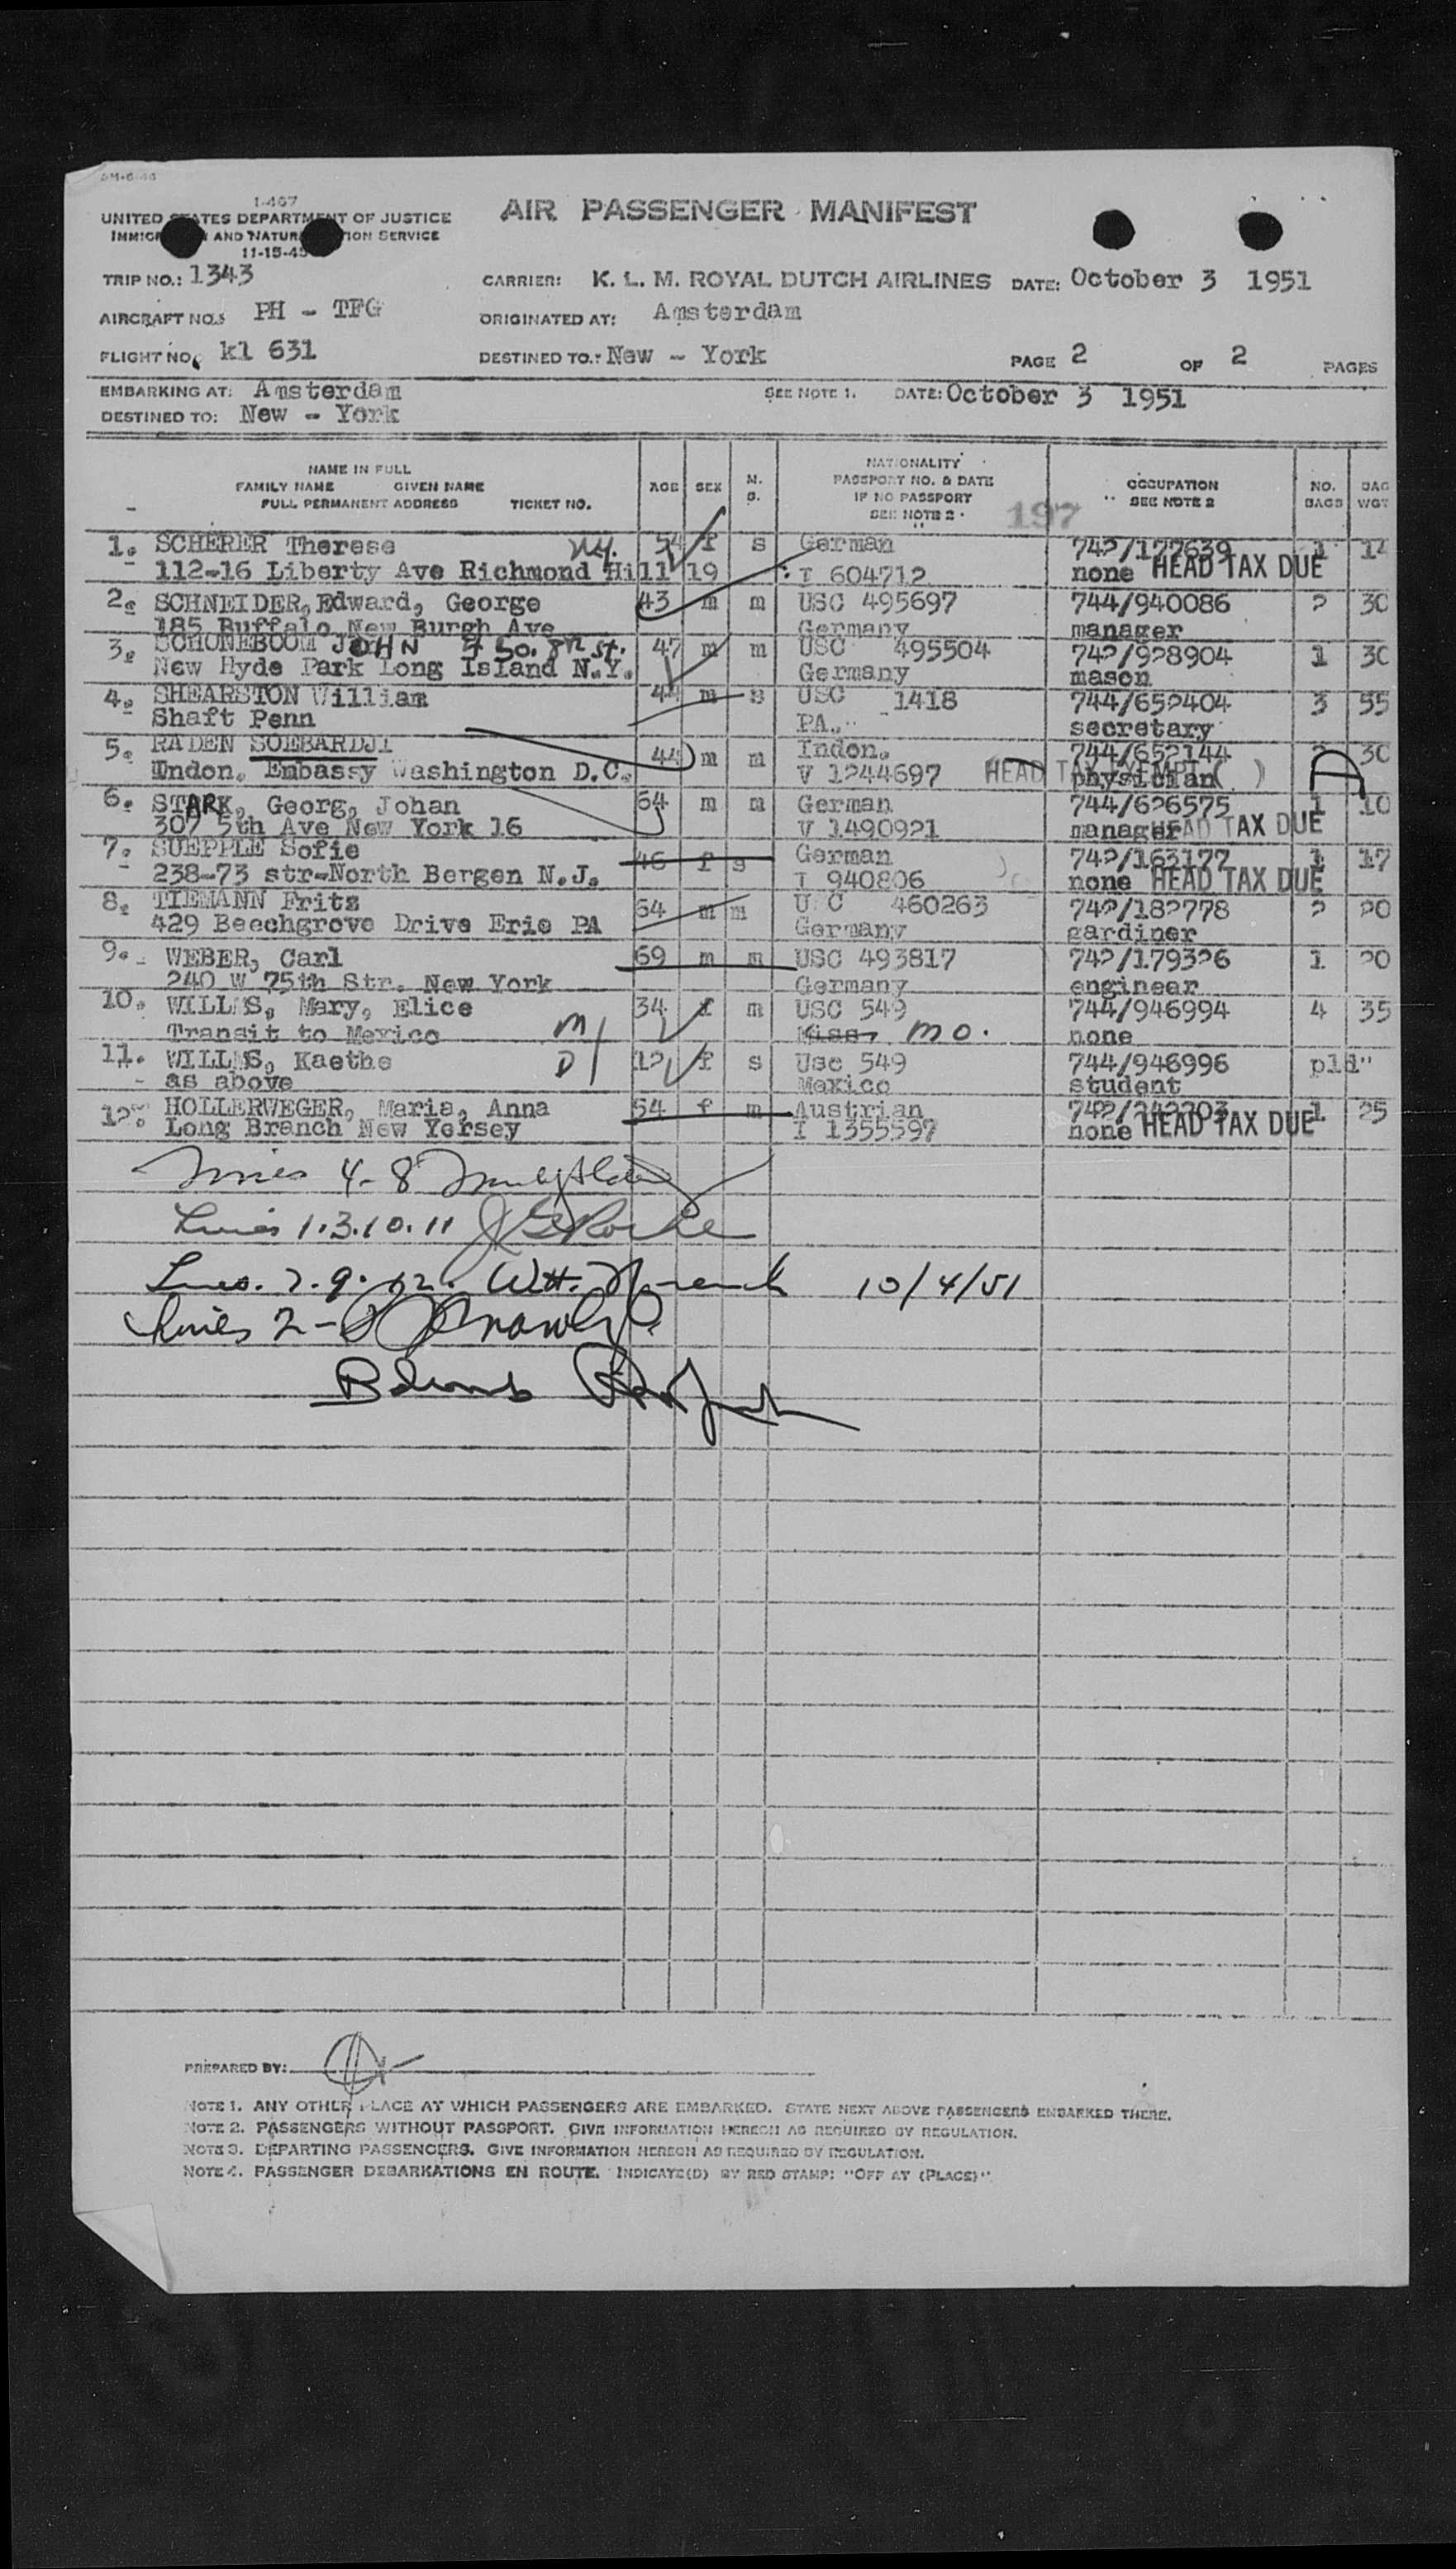 I-467
UNITED STATES DEPARTMENT OF JUSTICE
AND NATUR
11-15-45
AIR PASSENGER MANIFEST
TRIP NO.: 1343
CARRIER: K. L. M. ROYAL DUTCH AIRLINES DATE: October 3 1951
AIRCRAFT NO.: PH - TFG
ORIGINATED AT: Amsterdam
FLIGHT NO. kl 631
DESTINED TO.: New - York
PAGE 2 OF 2 PAGES
EMBARKING AT: Amsterdam
SEE NOTE 1. DATE: October 3 1951
DESTINED TO: New - York
NAME IN FULL
FAMILY NAME GIVEN NAME
FULL PERMANENT ADDRESS TICKET NO.
AGE SEX M. S.
NATIONALITY
PASSPORT NO. & DATE
IF NO PASSPORT
SEE NOTE 2
197
OCCUPATION
SEE NOTE 2
NO. BAGS
BAG WGT
1. SCHERER Therese NY. 54 f s German 742/177639 1 14
112-16 Liberty Ave Richmond Hill 19 I 604712 none HEAD TAX DUE
2. SCHNEIDER, Edward, George 43 m m USC 495697 744/940086 2 30
185 Buffalo New Burgh Ave Germany manager
3. SCHONEBOOM JOHN 7 So. 8th St. 47 m m USC 495504 742/928904 1 30
New Hyde Park Long Island N.Y. Germany mason
4. SHEARSTON William 44 m s USC 1418 744/652404 3 55
Shaft Penn PA. secretary
5. RADEN SOEBARDJI 44 m m Indon. 744/652144 2 30
Indon. Embassy Washington D.C. V 1244697 HEAD TAX EXEMPT ( ) physician A
6. STARK, Georg, Johan 64 m m German 744/626575 1 10
307 5th Ave New York 16 V 1490921 manager HEAD TAX DUE
7. SUEPPLE Sofie 46 f s German 742/163177 1 17
238-73 str-North Bergen N.J. I 940806 none HEAD TAX DUE
8. TIEMANN Fritz 64 m m U C 460263 742/182778 2 20
429 Beechgrove Drive Erie PA Germany gardiner
9. WEBER, Carl 69 m m USC 493817 742/179326 1 20
240 W 75th Str. New York Germany enginear
10. WILLMS, Mary, Elice 34 f m USC 549 744/946994 4 35
Transit to Mexico M Miss. MO. none
11. WILLMS, Kaethe D 12 f s Usc 549 744/946996 pld"
as above Mexico student
12. HOLLERWEGER, Maria, Anna 54 f m Austrian 742/242203 1 25
Long Branch New Yersey I 1355597 none HEAD TAX DUE
Lines 4-8
Lines 1.3.10.11
Lines. 7.9.12. 10/4/51
Lines 2-
PREPARED BY:
NOTE 1. ANY OTHER PLACE AT WHICH PASSENGERS ARE EMBARKED. STATE NEXT ABOVE PASSENGERS EMBARKED THERE.
NOTE 2. PASSENGERS WITHOUT PASSPORT. GIVE INFORMATION HEREON AS REQUIRED BY REGULATION.
NOTE 3. DEPARTING PASSENGERS. GIVE INFORMATION HEREON AS REQUIRED BY REGULATION.
NOTE 4. PASSENGER DEBARKATIONS EN ROUTE. INDICATE(D) BY RED STAMP: "OFF AT (PLACE)".